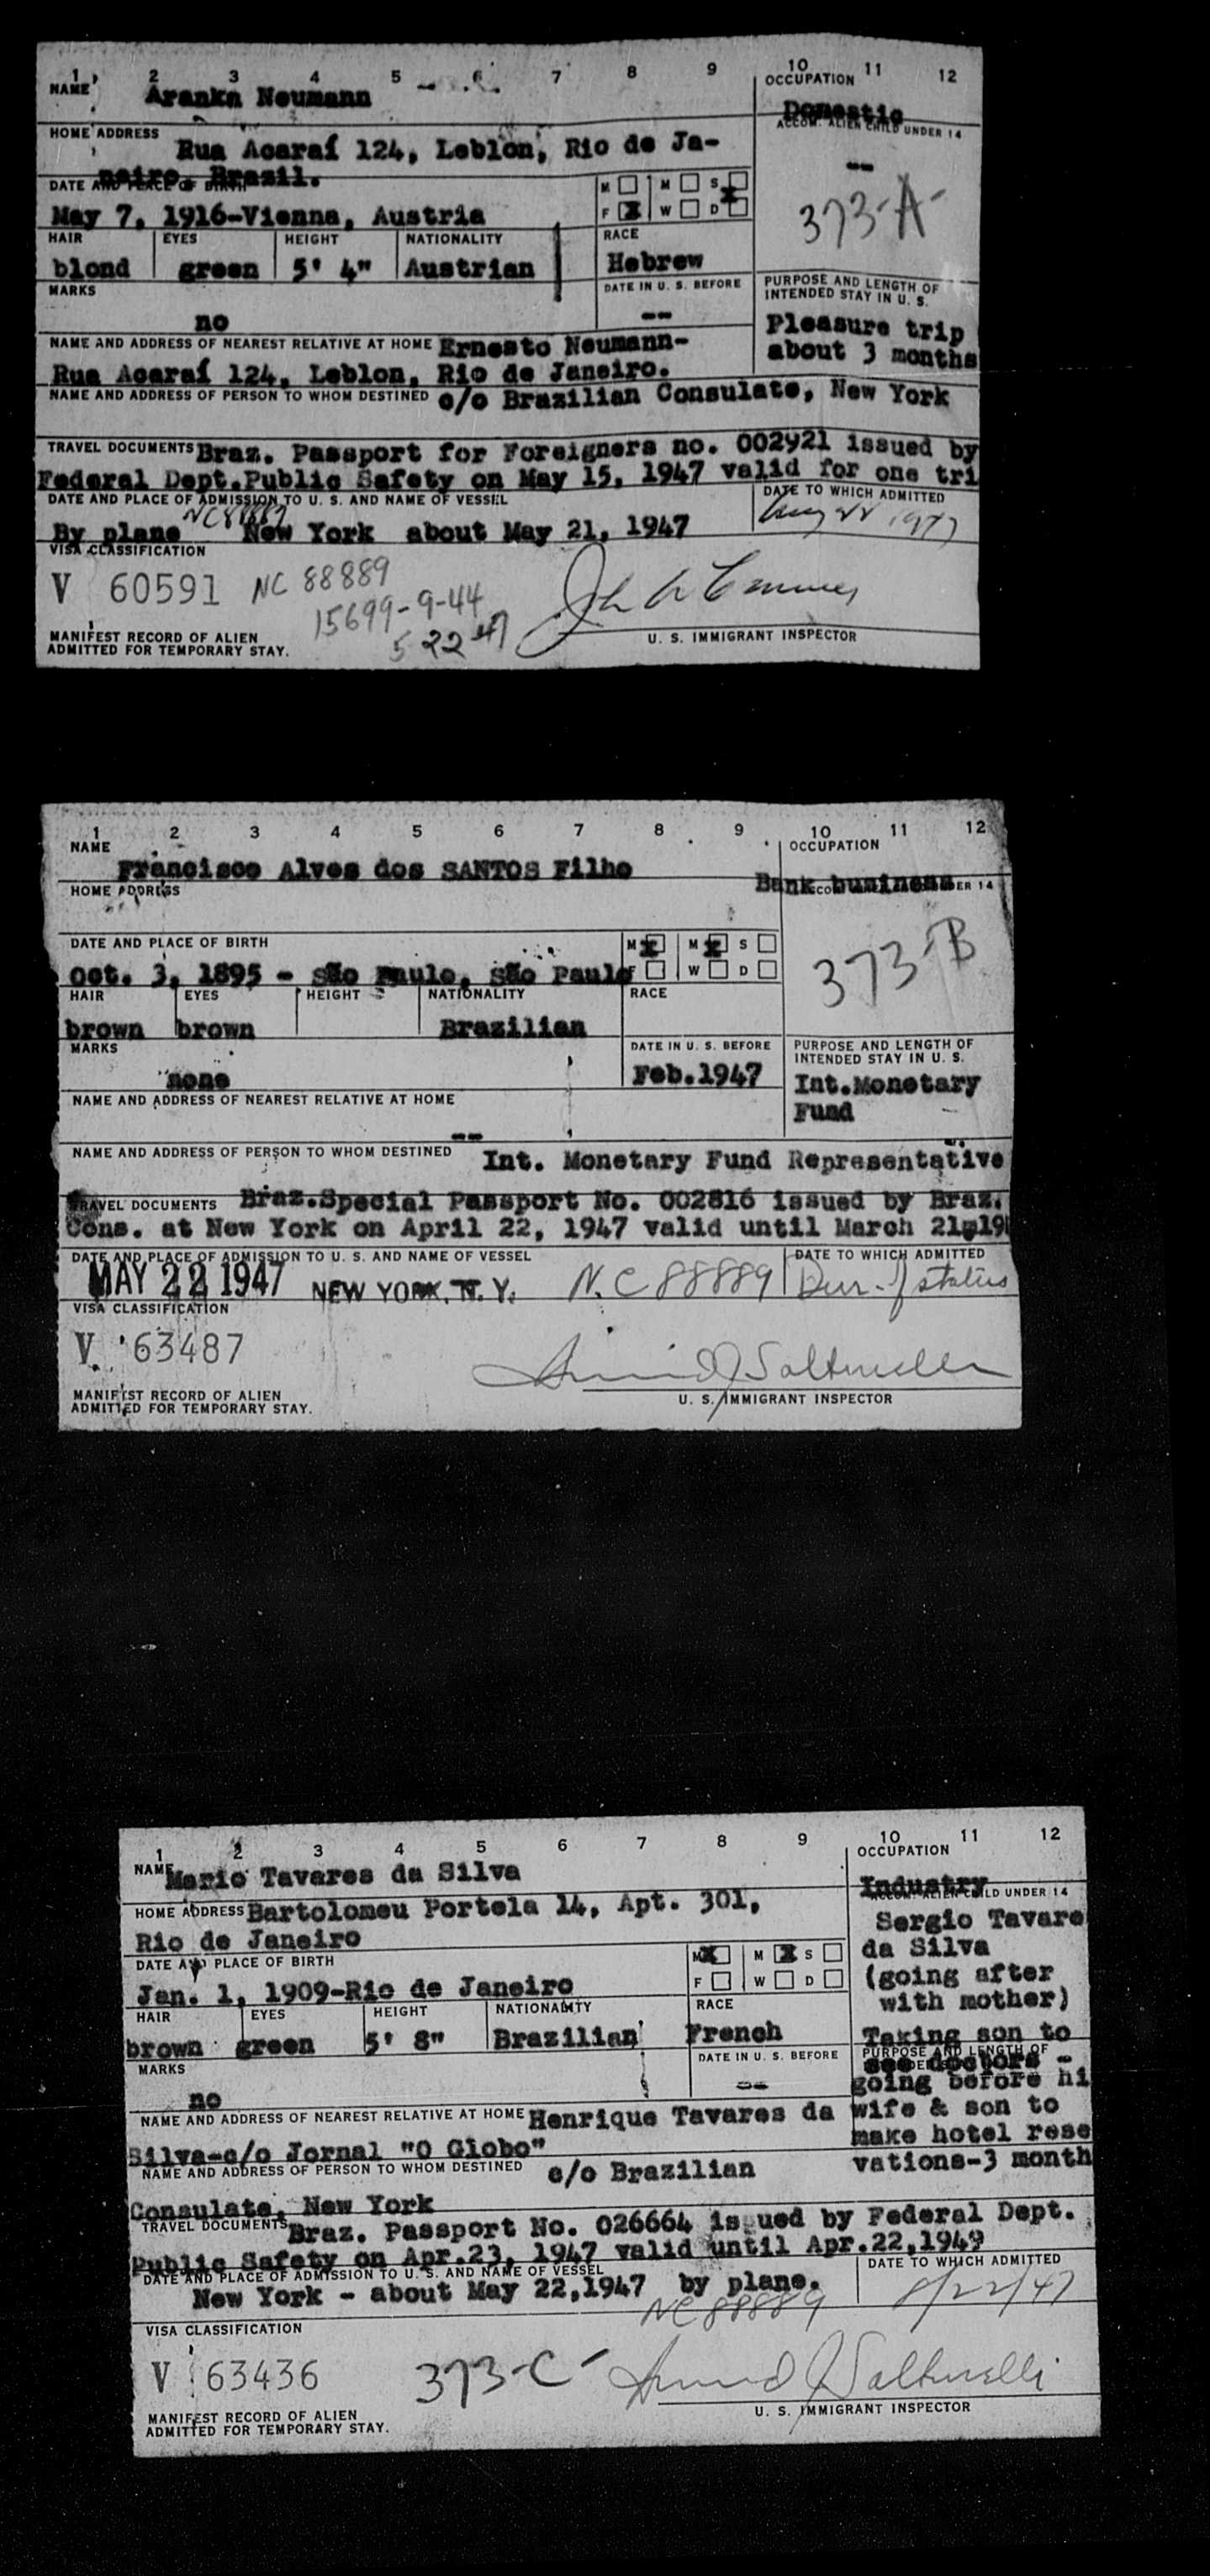 1 2 3 4 5 6 7 8 9 10 11 12
NAME Aranka Neumann
OCCUPATION
Domestic
ACCOM. ALIEN CHILD UNDER 14
--
HOME ADDRESS Rua Acaraí 124, Leblon, Rio de Ja-
neiro, Brazil.
373-A-
DATE AND PLACE OF BIRTH
May 7, 1916-Vienna, Austria
M M S X
F X W D
HAIR EYES HEIGHT NATIONALITY RACE
blond green 5' 4" Austrian Hebrew
MARKS
no
DATE IN U. S. BEFORE
--
PURPOSE AND LENGTH OF
INTENDED STAY IN U. S.
Pleasure trip
about 3 months
NAME AND ADDRESS OF NEAREST RELATIVE AT HOME Ernesto Neumann-
Rua Acaraí 124, Leblon, Rio de Janeiro.
NAME AND ADDRESS OF PERSON TO WHOM DESTINED c/o Brazilian Consulate, New York
TRAVEL DOCUMENTS Braz. Passport for Foreigners no. 002921 issued by
Federal Dept.Public Safety on May 15, 1947 valid for one tri
DATE AND PLACE OF ADMISSION TO U. S. AND NAME OF VESSEL
DATE TO WHICH ADMITTED
NC88887
By plane New York about May 21, 1947
Aug 22 1947
VISA CLASSIFICATION
V 60591 NC 88889
15699-9-44
5 22 47
MANIFEST RECORD OF ALIEN
ADMITTED FOR TEMPORARY STAY.
U. S. IMMIGRANT INSPECTOR
1 2 3 4 5 6 7 8 9 10 11 12
NAME
Francisco Alves dos SANTOS Filho
OCCUPATION
Bank business
HOME ADDRESS
373-B
DATE AND PLACE OF BIRTH
Oct. 3, 1895 - São Paulo, São Paulo
M X M X S
F W D
HAIR EYES HEIGHT NATIONALITY RACE
brown brown Brazilian
MARKS
none
DATE IN U. S. BEFORE
Feb.1947
PURPOSE AND LENGTH OF
INTENDED STAY IN U. S.
Int.Monetary
Fund
NAME AND ADDRESS OF NEAREST RELATIVE AT HOME
--
NAME AND ADDRESS OF PERSON TO WHOM DESTINED Int. Monetary Fund Representative
TRAVEL DOCUMENTS Braz.Special Passport No. 002816 issued by Braz.
Cons. at New York on April 22, 1947 valid until March 21,19
DATE AND PLACE OF ADMISSION TO U. S. AND NAME OF VESSEL
DATE TO WHICH ADMITTED
MAY 22 1947 NEW YORK, N. Y. NC 88889 Dur. of status
VISA CLASSIFICATION
V 63487
MANIFEST RECORD OF ALIEN
ADMITTED FOR TEMPORARY STAY.
U. S. IMMIGRANT INSPECTOR
1 2 3 4 5 6 7 8 9 10 11 12
NAME Mario Tavares da Silva
OCCUPATION
Industry
ACCOM. ALIEN CHILD UNDER 14
Sergio Tavare
da Silva
(going after
with mother)
HOME ADDRESS Bartolomeu Portela 14, Apt. 301,
Rio de Janeiro
DATE AND PLACE OF BIRTH
Jan. 1, 1909-Rio de Janeiro
M X M X S
F W D
HAIR EYES HEIGHT NATIONALITY RACE
brown green 5' 8" Brazilian French
MARKS
no
DATE IN U. S. BEFORE
--
PURPOSE AND LENGTH OF
Taking son to
see doctors -
going before hi
wife & son to
make hotel rese
vations-3 month
NAME AND ADDRESS OF NEAREST RELATIVE AT HOME Henrique Tavares da
Silva-c/o Jornal "O Globo"
NAME AND ADDRESS OF PERSON TO WHOM DESTINED c/o Brazilian
Consulate, New York
TRAVEL DOCUMENTS Braz. Passport No. 026664 issued by Federal Dept.
Public Safety on Apr.23, 1947 valid until Apr.22,1949
DATE AND PLACE OF ADMISSION TO U. S. AND NAME OF VESSEL
DATE TO WHICH ADMITTED
New York - about May 22,1947 by plane.
NC88889
8/22/47
VISA CLASSIFICATION
V 63436 373-C-
MANIFEST RECORD OF ALIEN
ADMITTED FOR TEMPORARY STAY.
U. S. IMMIGRANT INSPECTOR